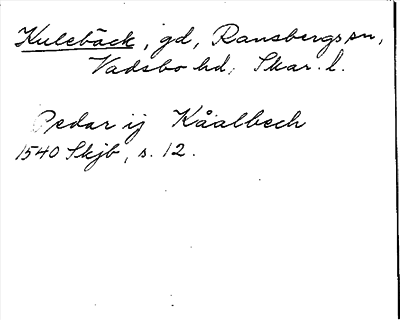 Kulebäck, gd, Ransbergs sn,
Vadsbo hd, Skar. l.
Pedar ij Kåalbech
1540 Skjb, s. 12.